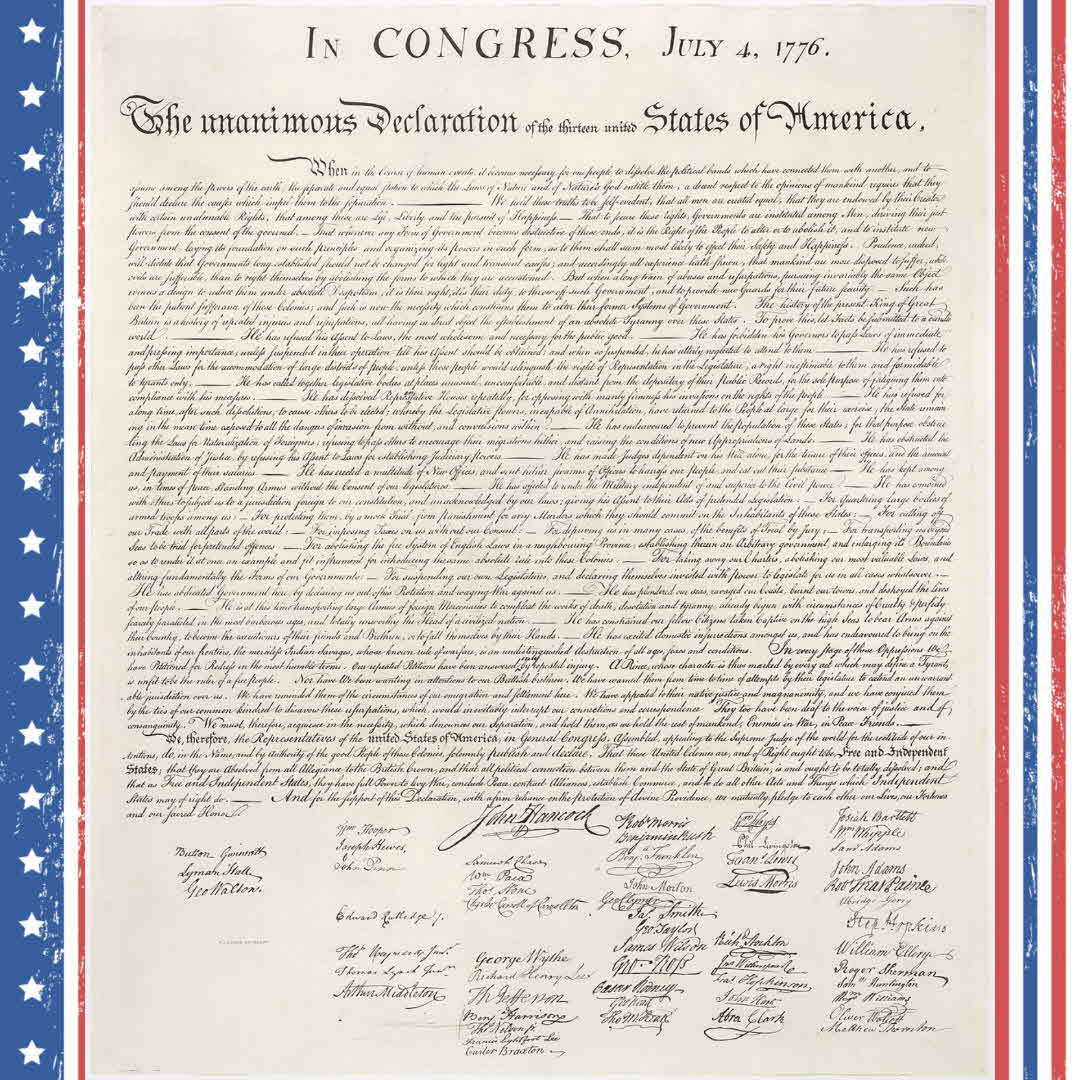 In CONGRESS, July 4, 1776.
The unanimous Declaration of the thirteen united States of America,
When in the Course of human events, it becomes necessary for one people to dissolve the political bands which have connected them with another, and to
assume among the powers of the earth, the separate and equal station to which the Laws of Nature and of Nature's God entitle them, a decent respect to the opinions of mankind requires that they
should declare the causes which impel them to the separation. We hold these truths to be self-evident, that all men are created equal, that they are endowed by their Creator
with certain unalienable Rights, that among these are Life, Liberty and the pursuit of Happiness — That to secure these rights, Governments are instituted among Men, deriving their just
powers from the consent of the governed, — That whenever any Form of Government becomes destructive of these ends, it is the Right of the People to alter or to abolish it, and to institute new
Government, laying its foundation on such principles and organizing its powers in such form, as to them shall seem most likely to effect their Safety and Happiness. Prudence, indeed,
will dictate that Governments long established should not be changed for light and transient causes; and accordingly all experience hath shewn, that mankind are more disposed to suffer, while
evils are sufferable, than to right themselves by abolishing the forms to which they are accustomed. But when a long train of abuses and usurpations, pursuing invariably the same Object
evinces a design to reduce them under absolute Despotism, it is their right, it is their duty, to throw off such Government, and to provide new Guards for their future security. — Such has
been the patient sufferance of these Colonies; and such is now the necessity which constrains them to alter their former Systems of Government. The history of the present King of Great
Britain is a history of repeated injuries and usurpations, all having in direct object the establishment of an absolute Tyranny over these States. To prove this, let Facts be submitted to a candid
world. He has refused his Assent to Laws, the most wholesome and necessary for the public good. He has forbidden his Governors to pass Laws of immediate
and pressing importance, unless suspended in their operation till his Assent should be obtained; and when so suspended, he has utterly neglected to attend to them. He has refused to
pass other Laws for the accommodation of large districts of people, unless those people would relinquish the right of Representation in the Legislature, a right inestimable to them and formidable
to tyrants only. He has called together legislative bodies at places unusual, uncomfortable, and distant from the depository of their Public Records, for the sole purpose of fatiguing them into
compliance with his measures. He has dissolved Representative Houses repeatedly, for opposing with manly firmness his invasions on the rights of the people. He has refused for
a long time, after such dissolutions, to cause others to be elected; whereby the Legislative powers, incapable of Annihilation, have returned to the People at large for their exercise; the State remain-
ing in the mean time exposed to all the dangers of invasion from without, and convulsions within. He has endeavoured to prevent the population of these States; for that purpose obstruc-
ting the Laws for Naturalization of Foreigners; refusing to pass others to encourage their migrations hither, and raising the conditions of new Appropriations of Lands. He has obstructed the
Administration of Justice, by refusing his Assent to Laws for establishing Judiciary powers. He has made Judges dependent on his Will alone, for the tenure of their offices, and the amount
and payment of their salaries. He has erected a multitude of New Offices, and sent hither swarms of Officers to harrass our people, and eat out their substance. He has kept among
us, in times of peace, Standing Armies without the Consent of our legislatures. He has affected to render the Military independent of and superior to the Civil power. He has combined
with others to subject us to a jurisdiction foreign to our constitution, and unacknowledged by our laws; giving his Assent to their Acts of pretended Legislation: For Quartering large bodies of
armed troops among us: For protecting them, by a mock Trial, from punishment for any Murders which they should commit on the Inhabitants of these States: For cutting off
our Trade with all parts of the world: For imposing Taxes on us without our Consent: For depriving us in many cases, of the benefits of Trial by Jury: For transporting us beyond
Seas to be tried for pretended offences: For abolishing the free System of English Laws in a neighbouring Province, establishing therein an Arbitrary government, and enlarging its Boundaries
so as to render it at once an example and fit instrument for introducing the same absolute rule into these Colonies: For taking away our Charters, abolishing our most valuable Laws, and
altering fundamentally the Forms of our Governments: For suspending our own Legislatures, and declaring themselves invested with power to legislate for us in all cases whatsoever.
He has abdicated Government here, by declaring us out of his Protection and waging War against us. He has plundered our seas, ravaged our Coasts, burnt our towns, and destroyed the lives
of our people. He is at this time transporting large Armies of foreign Mercenaries to compleat the works of death, desolation and tyranny, already begun with circumstances of Cruelty & perfidy
scarcely paralleled in the most barbarous ages, and totally unworthy the Head of a civilized nation. He has constrained our fellow Citizens taken Captive on the high Seas to bear Arms against
their Country, to become the executioners of their friends and Brethren, or to fall themselves by their Hands. He has excited domestic insurrections amongst us, and has endeavoured to bring on the
inhabitants of our frontiers, the merciless Indian Savages, whose known rule of warfare, is an undistinguished destruction of all ages, sexes and conditions. In every stage of these Oppressions We
have Petitioned for Redress in the most humble terms: Our repeated Petitions have been answered only by repeated injury. A Prince, whose character is thus marked by every act which may define a Tyrant,
is unfit to be the ruler of a free people. Nor have We been wanting in attentions to our Brittish brethren. We have warned them from time to time of attempts by their legislature to extend an unwarrant-
able jurisdiction over us. We have reminded them of the circumstances of our emigration and settlement here. We have appealed to their native justice and magnanimity, and we have conjured them
by the ties of our common kindred to disavow these usurpations, which, would inevitably interrupt our connections and correspondence. They too have been deaf to the voice of justice and of
consanguinity. We must, therefore, acquiesce in the necessity, which denounces our Separation, and hold them, as we hold the rest of mankind, Enemies in War, in Peace Friends.
We, therefore, the Representatives of the united States of America, in General Congress, Assembled, appealing to the Supreme Judge of the world for the rectitude of our in-
tentions, do, in the Name, and by Authority of the good People of these Colonies, solemnly publish and declare, That these United Colonies are, and of Right ought to be Free and Independent
States; that they are Absolved from all Allegiance to the British Crown, and that all political connection between them and the State of Great Britain, is and ought to be totally dissolved; and
that as Free and Independent States, they have full Power to levy War, conclude Peace, contract Alliances, establish Commerce, and to do all other Acts and Things which Independent
States may of right do. And for the support of this Declaration, with a firm reliance on the protection of divine Providence, we mutually pledge to each other our Lives, our Fortunes
and our sacred Honor.
Button Gwinnett
Lyman Hall
Geo Walton.
Wm Hooper
Joseph Hewes,
John Penn
Edward Rutledge
Thos Heyward Junr.
Thomas Lynch Junr.
Arthur Middleton
John Hancock
Samuel Chase
Wm Paca
Thos Stone
Charles Carroll of Carrollton
George Wythe
Richard Henry Lee
Th Jefferson
Benj Harrison
Thos Nelson jr.
Francis Lightfoot Lee
Carter Braxton
Robt Morris
Benjamin Rush
Benj. Franklin
John Morton
Geo Clymer
Jas. Smith
Geo. Taylor
James Wilson
Geo. Ross
Caesar Rodney
Geo Read
Tho M:Kean
Wm Floyd
Phil. Livingston
Frans. Lewis
Lewis Morris
Richd. Stockton
Jno Witherspoon
Fras. Hopkinson
John Hart
Abra Clark
Josiah Bartlett
Wm Whipple
Saml Adams
John Adams
Robt Treat Paine
Elbridge Gerry
Step. Hopkins
William Ellery
Roger Sherman
Saml Huntington
Wm Williams
Oliver Wolcott
Matthew Thornton